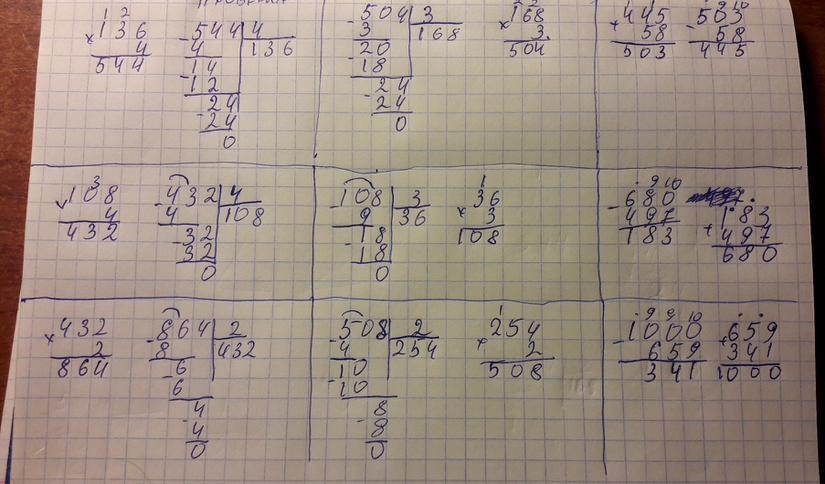 1 2
×136
4
544
-544 4
4 136
-14
12
-24
24
0
-504 3
3 168
-20
18
-24
24
0
×168
3
504
+445
58
503
9 10
-503
58
445
3
×108
4
432
-432 4
4 108
-32
32
0
-108 3
9 36
-18
18
0
1
×36
3
108
9 10
-680
497
183
+183
497
680
×432
2
864
-864 2
8 432
-6
6
-4
4
0
-508 2
4 254
-10
10
-8
8
0
1
×254
2
508
9 9 10
-1000
659
341
+659
341
1000